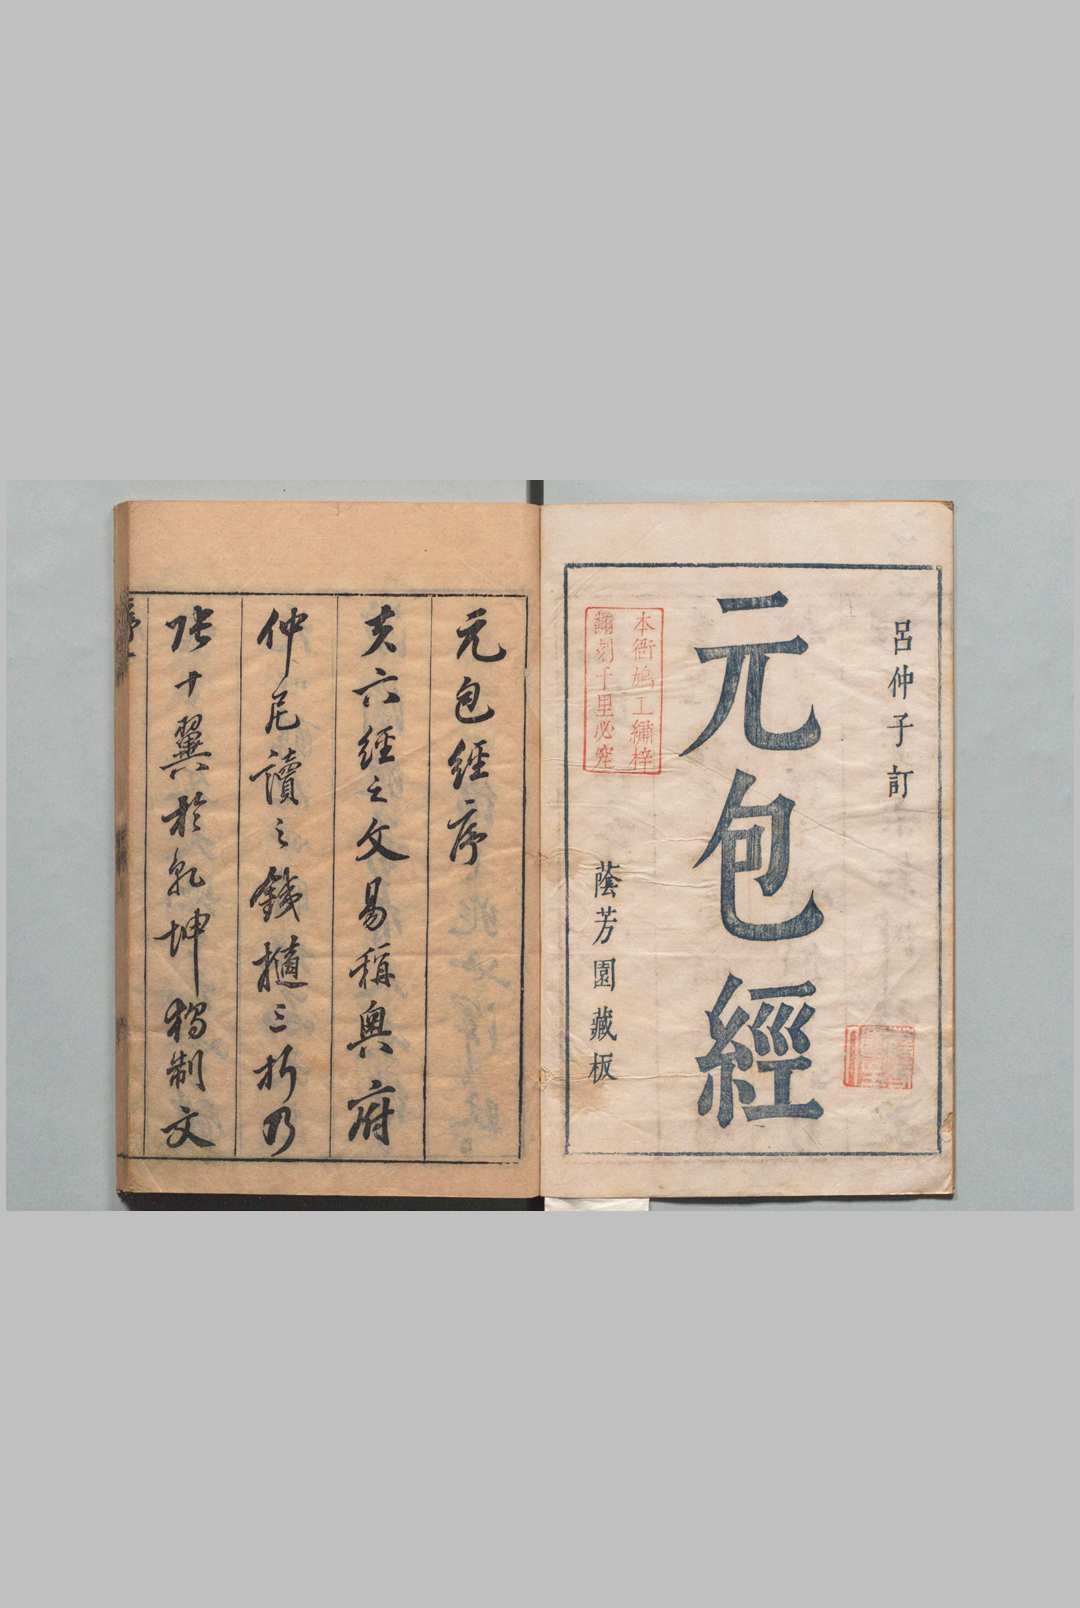 呂仲子訂
元包經
本衙鳩工繡梓
翻刻千里必究
蔭芳園藏板
元包經序
夫六經之文易稱奧府
仲尼讀之鉄撾三折乃
張十翼於乾坤獨制文
序一